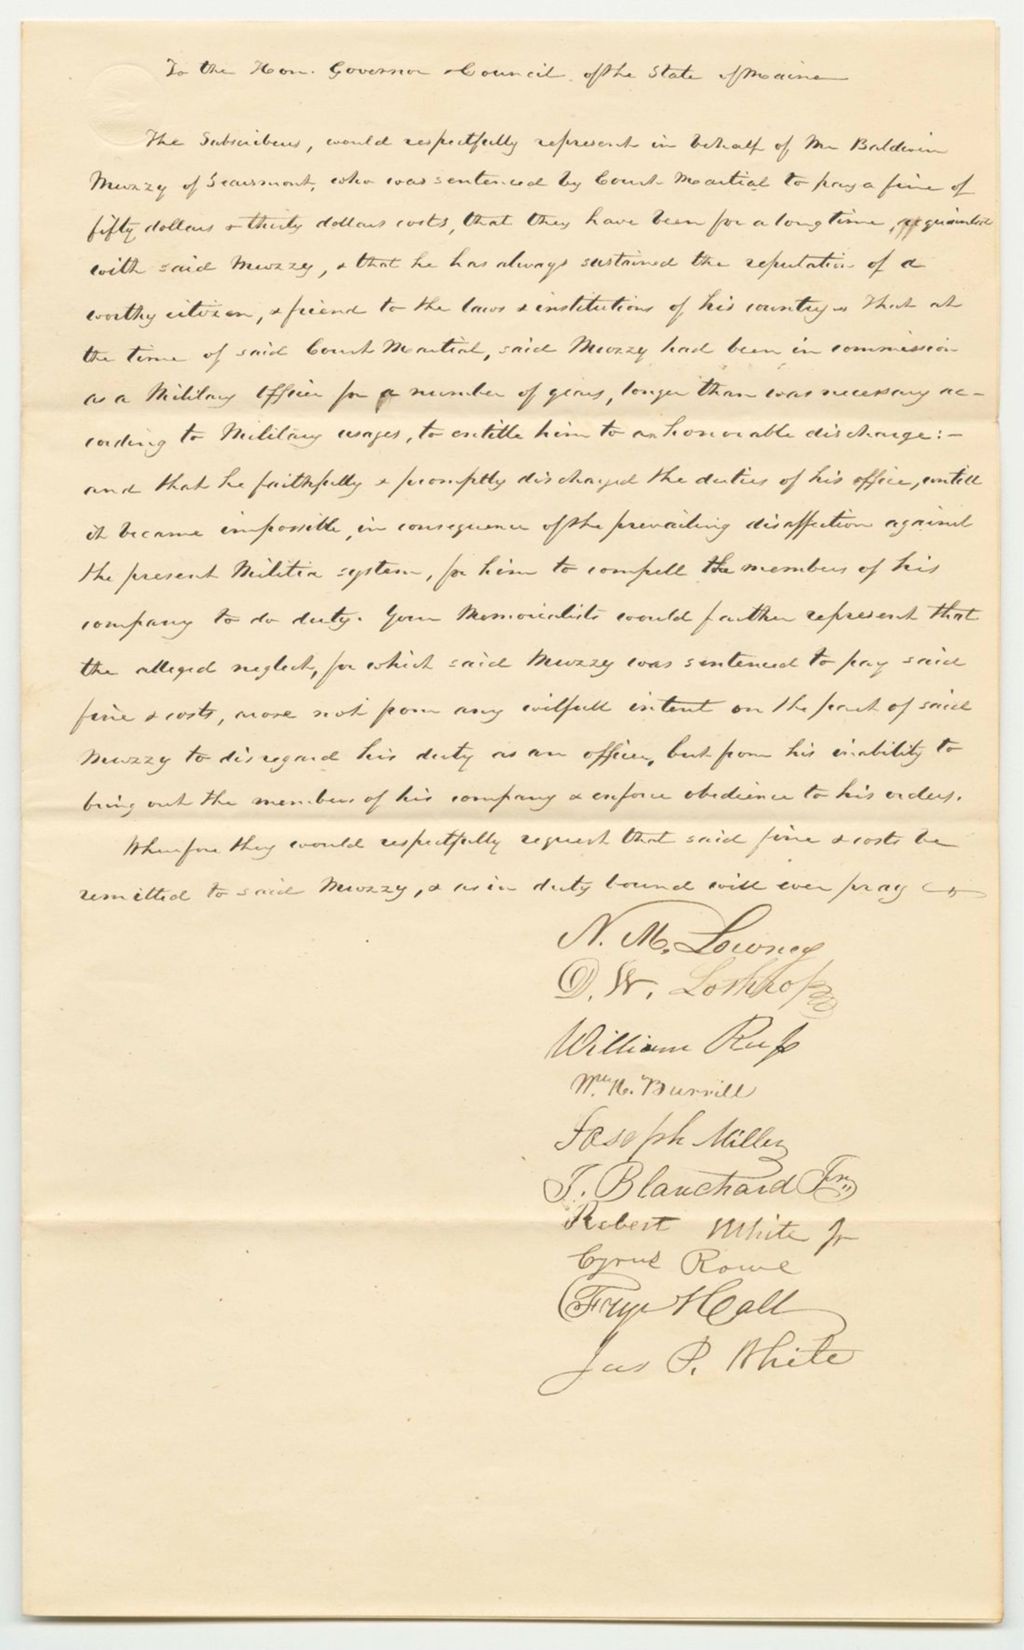 To the Hon. Governor & Council of the State of Maine
The Subscribers, would respectfully represent in behalf of Mr Baldwin
Muzzy of Searsmont, who was sentenced by Court Martial to pay a fine of
fifty dollars & thirty dollars costs, that they have been for a long time, acquainted
with said Muzzy, & that he has always sustained the reputation of a
worthy citizen, & friend to the laws & institutions of his country & that at
the time of said Court Martial, said Muzzy had been in commission
as a Military Officer for a number of years, longer than was necessary ac-
cording to Military usages, to entitle him to an honorable discharge:-
and that he faithfully & promptly discharged the duties of his office, untill
it became impossible, in consequence of the prevailing disaffection against
the present Militia system, for him to compell the members of his
company to do duty. Your Memorialists would farther represent that
the alleged neglect, for which said Muzzy was sentenced to pay said
fine & costs, arose not from any wilfull intent on the part of said
Muzzy to disregard his duty as an officer, but from his inability to
bring out the members of his company & enforce obedience to his orders.
Wherefore they would respectfully request that said fine & costs be
remitted to said Muzzy, & as in duty bound will ever pray
N. M. Lowney
D. W. Lothrop
William Russ
Wm H. Burrill
Joseph Miller
J. Blanchard Jr.
Robert White Jr
Cyrus Rowe
Frye Hall
Jas P. White